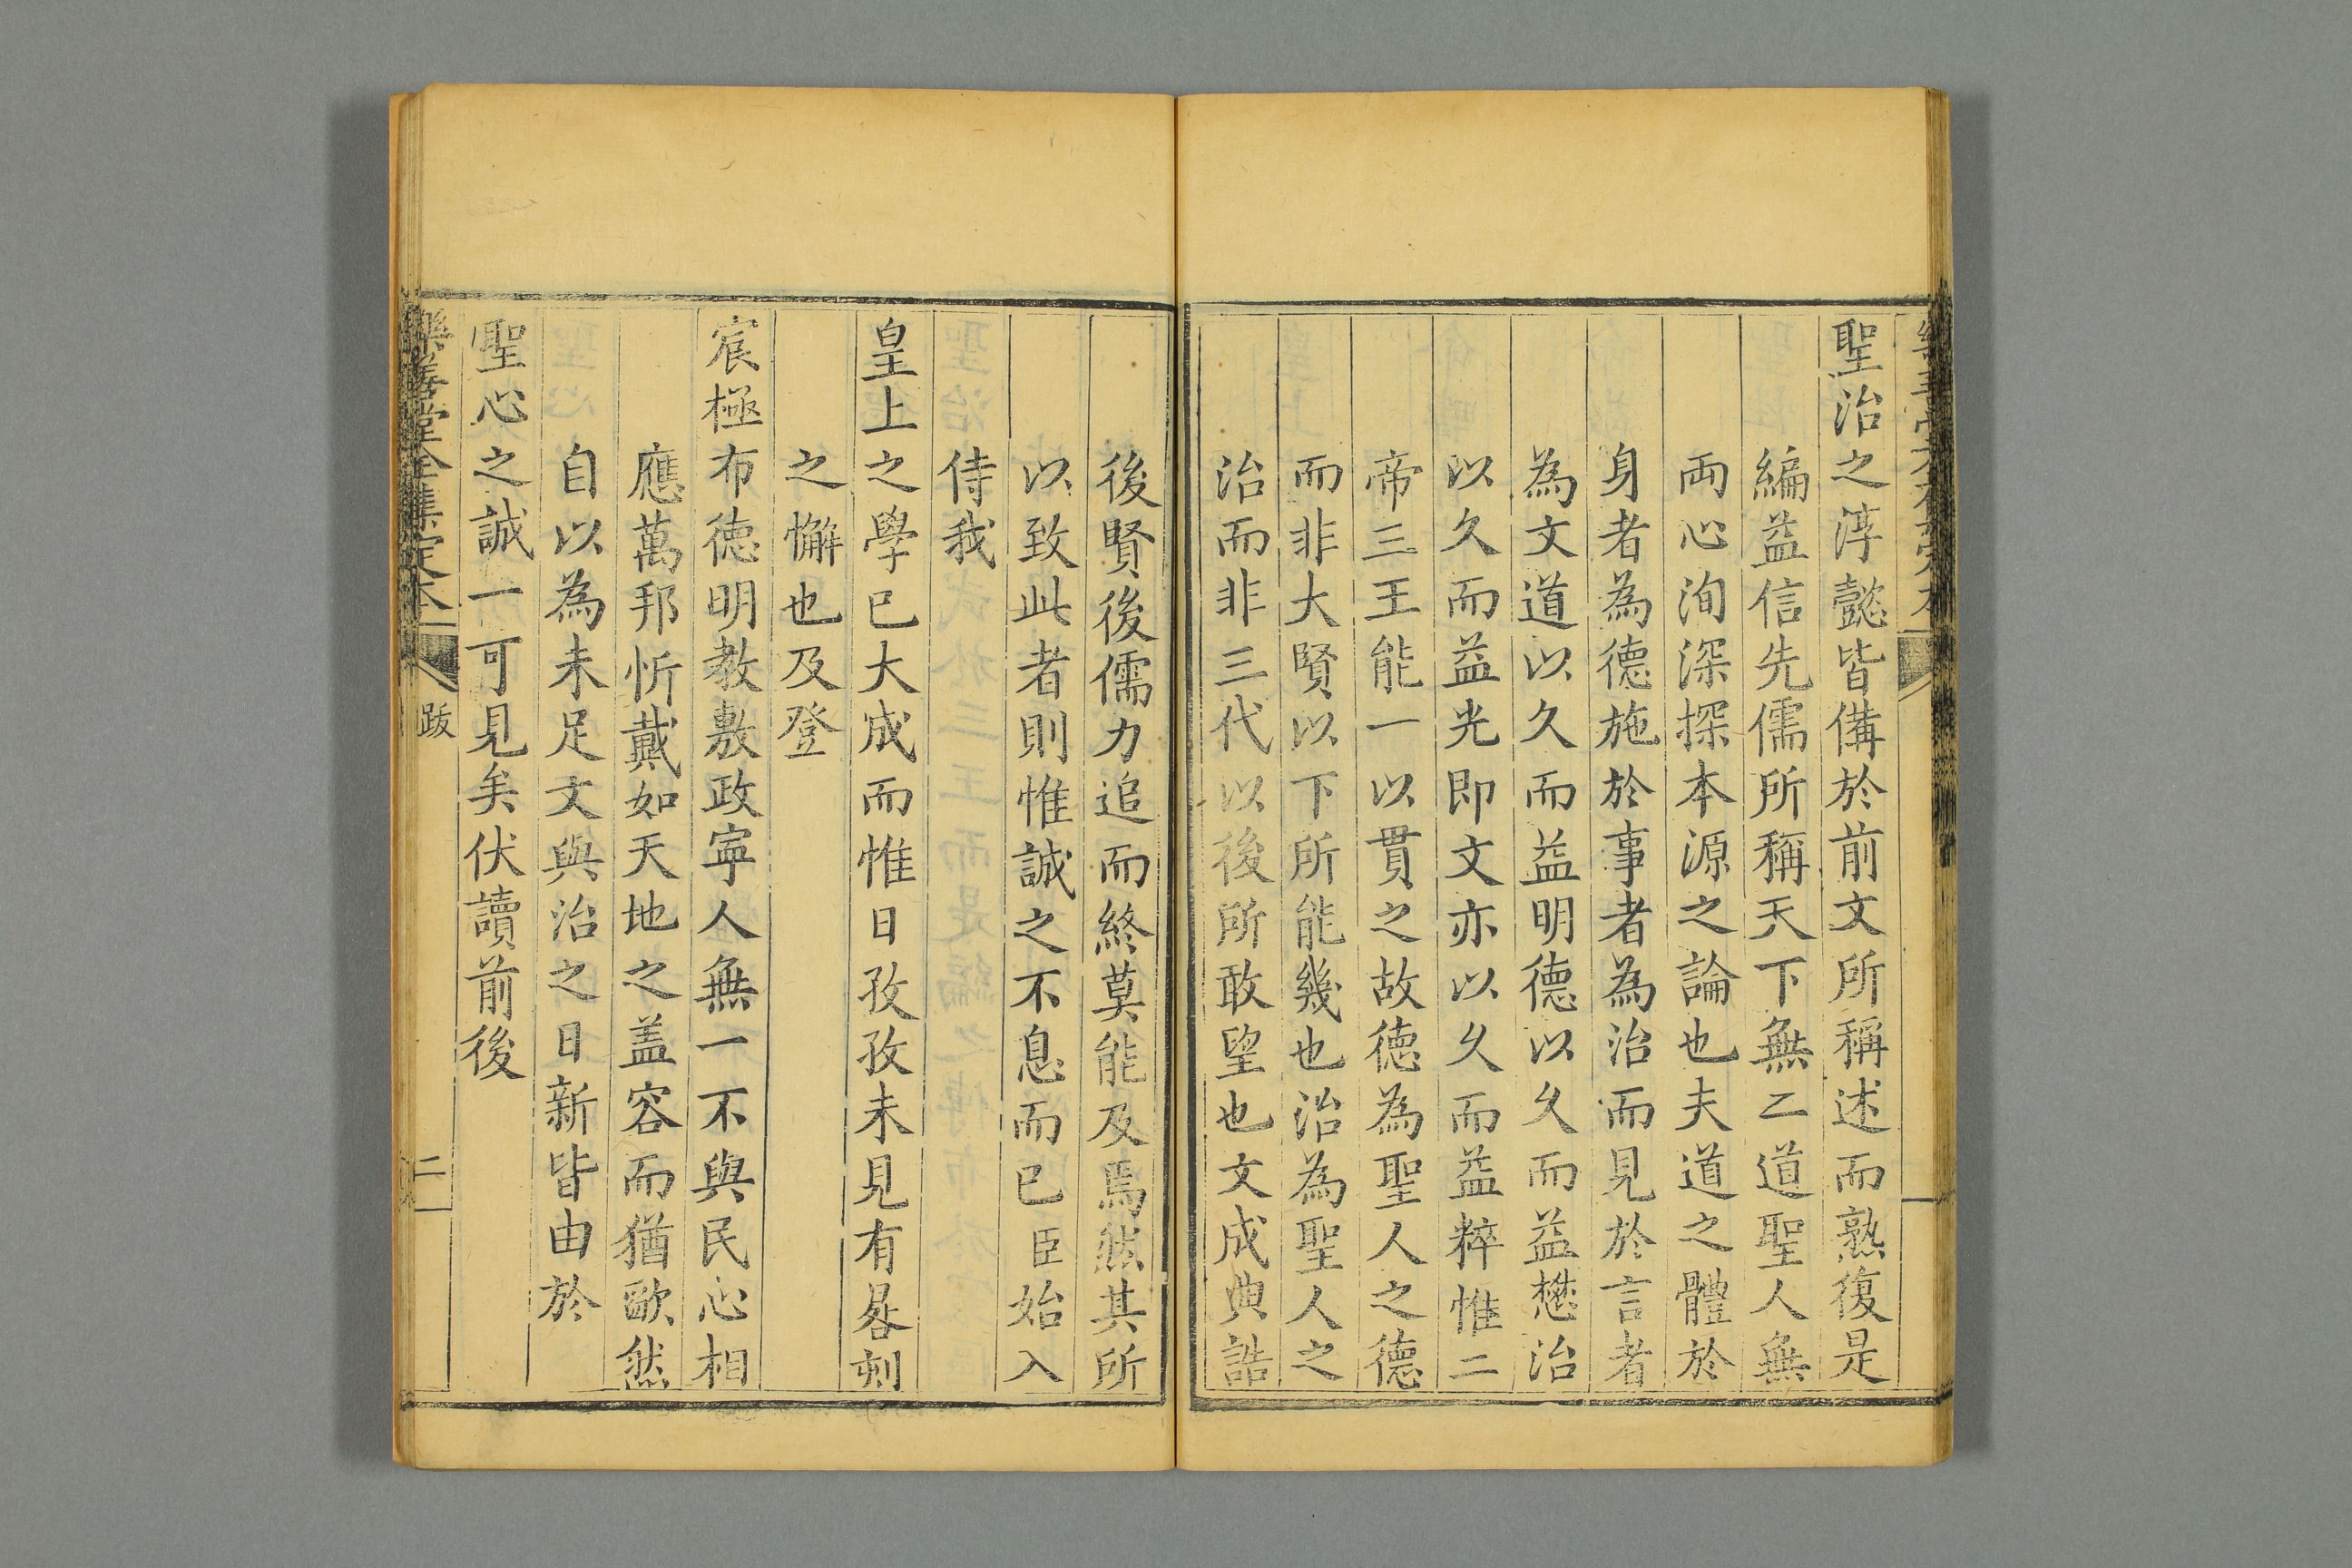 聖治之淳懿皆備於前文所稱述而熟復是
編益信先儒所稱天下無二道聖人無
兩心洵深探本源之論也夫道之體於
身者為德施於事者為治而見於言者
為文道以久而益明德以久而益懋治
以久而益光即文亦以久而益粹惟二
帝三王能一以貫之故德為聖人之德
而非大賢以下所能幾也治為聖人之
治而非三代以後所敢望也文成典誥
後賢後儒力追而終莫能及焉然其所
以致此者則惟誠之不息而已臣始入
侍我
皇上之學已大成而惟日孜孜未見有晷刻
之懈也及登
宸極布德明教敷政寧人無一不與民心相
應萬邦忻戴如天地之盖容而猶歐然
自以為未足文與治之日新皆由於
聖心之誠一可見矣伏讀前後
樂善堂全集定本 跋 二